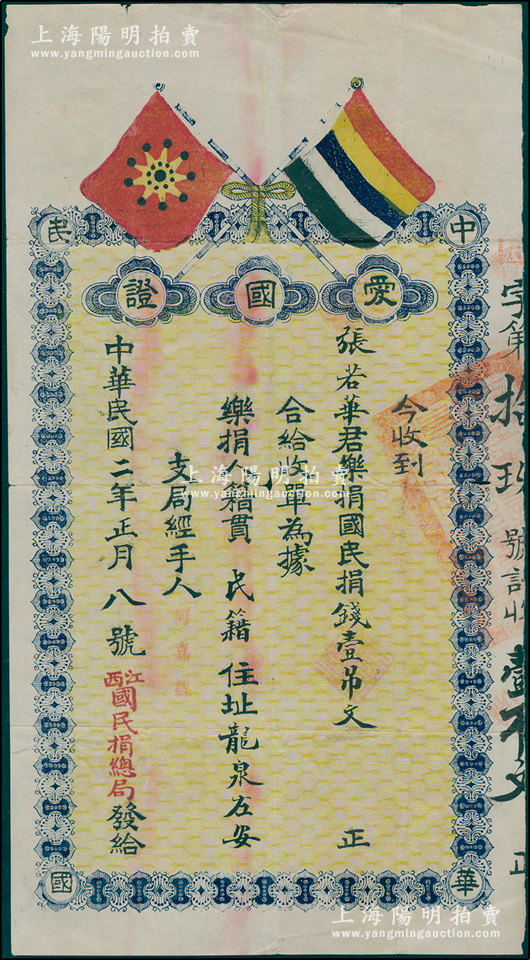 上海陽明拍賣
www.yangmingauction.com
中華民國
愛國證
今收到
張若華君樂捐國民捐錢壹吊文 正
合給收單為據
樂捐人籍貫 民籍 住址龍泉左安
支局經手人 何嘉
中華民國二年正月八號 江西國民捐總局發給
字第拾玖號計收壹吊文 正
上海陽明拍賣
www.yangmingauction.com
上海陽明拍賣
www.yangmingauction.com